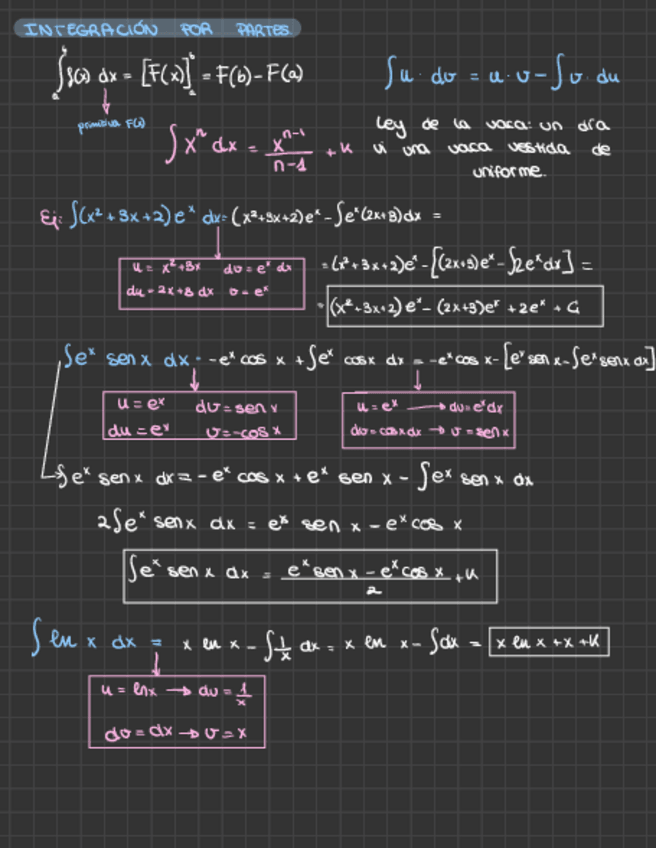 INTEGRACIÓN POR PARTES
∫ₐᵇ f(x) dx = [F(x)]ₐᵇ = F(b) - F(a)
∫ u · dv = u · v - ∫ v · du
primitiva F(x)
∫ xⁿ dx = xⁿ⁻¹ / n-1 + K
Ley de la vaca: un día
vi una vaca vestida de
uniforme.
Ej: ∫(x² + 3x + 2) eˣ dx = (x² + 3x + 2) eˣ - ∫ eˣ (2x+3) dx =
u = x² + 3x dv = eˣ dx
du = 2x+3 dx v = eˣ
= (x² + 3x + 2) eˣ - [(2x+3) eˣ - ∫ 2eˣ dx] =
= (x² + 3x + 2) eˣ - (2x+3) eˣ + 2eˣ + C
∫ eˣ sen x dx = -eˣ cos x + ∫ eˣ cos x dx = -eˣ cos x - [eˣ sen x - ∫ eˣ sen x dx]
u = eˣ dv = sen x
du = eˣ v = -cos x
u = eˣ → du = eˣ dx
dv = cos x dx → v = sen x
∫ eˣ sen x dx = -eˣ cos x + eˣ sen x - ∫ eˣ sen x dx
2∫ eˣ sen x dx = eˣ sen x - eˣ cos x
∫ eˣ sen x dx = eˣ sen x - eˣ cos x / 2 + K
∫ ln x dx = x ln x - ∫ 1/x dx = x ln x - ∫ dx = x ln x + x + K
u = ln x → du = 1/x
dv = dx → v = x